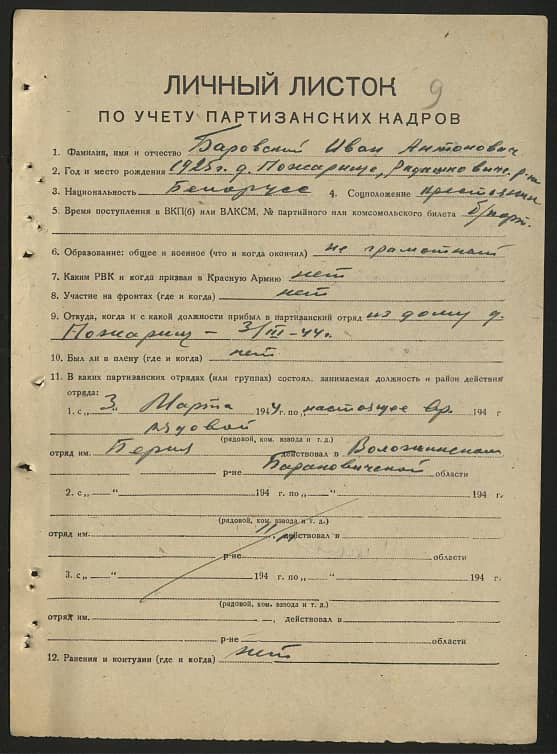 9
ЛИЧНЫЙ ЛИСТОК
ПО УЧЕТУ ПАРТИЗАНСКИХ КАДРОВ
1. Фамилия, имя и отчество Баровский Иван Антонович
2. Год и место рождения 1925 г. д. Пожарище, Радашковичс. р-на
3. Национальность Белорусс 4. Соцположение крестьянин
5. Время поступления в ВКП(б) или ВЛКСМ, № партийного или комсомольского билета б/парт.
6. Образование: общее и военное (что и когда окончил) не грамотный
7. Каким РВК и когда призван в Красную Армию нет
8. Участие на фронтах (где и когда) нет
9. Откуда, когда и с какой должности прибыл в партизанский отряд из дому д.
Пожарищ — 3/III-44 г.
10. Был ли в плену (где и когда) нет
11. В каких партизанских отрядах (или группах) состоял, занимаемая должность и район действия
отряда:
1. с „3" Марта 1944 г. по „настоящее вр. 194 г
рядовой
(рядовой, ком. взвода и т. д.)
отряд им. Берия действовал в Воложинском
р-не Барановичской области
2. с „ — " 194 г. по „ " 194 г.
(рядовой, ком. взвода и т. д.)
отряд им. действовал в
р-не области
3. с „ — " 194 г. по „ " 194 г.
(рядовой, ком. взвода и т. д.)
отряд им. —, действовал в
р-не области
12. Ранения и контузии (где и когда) нет